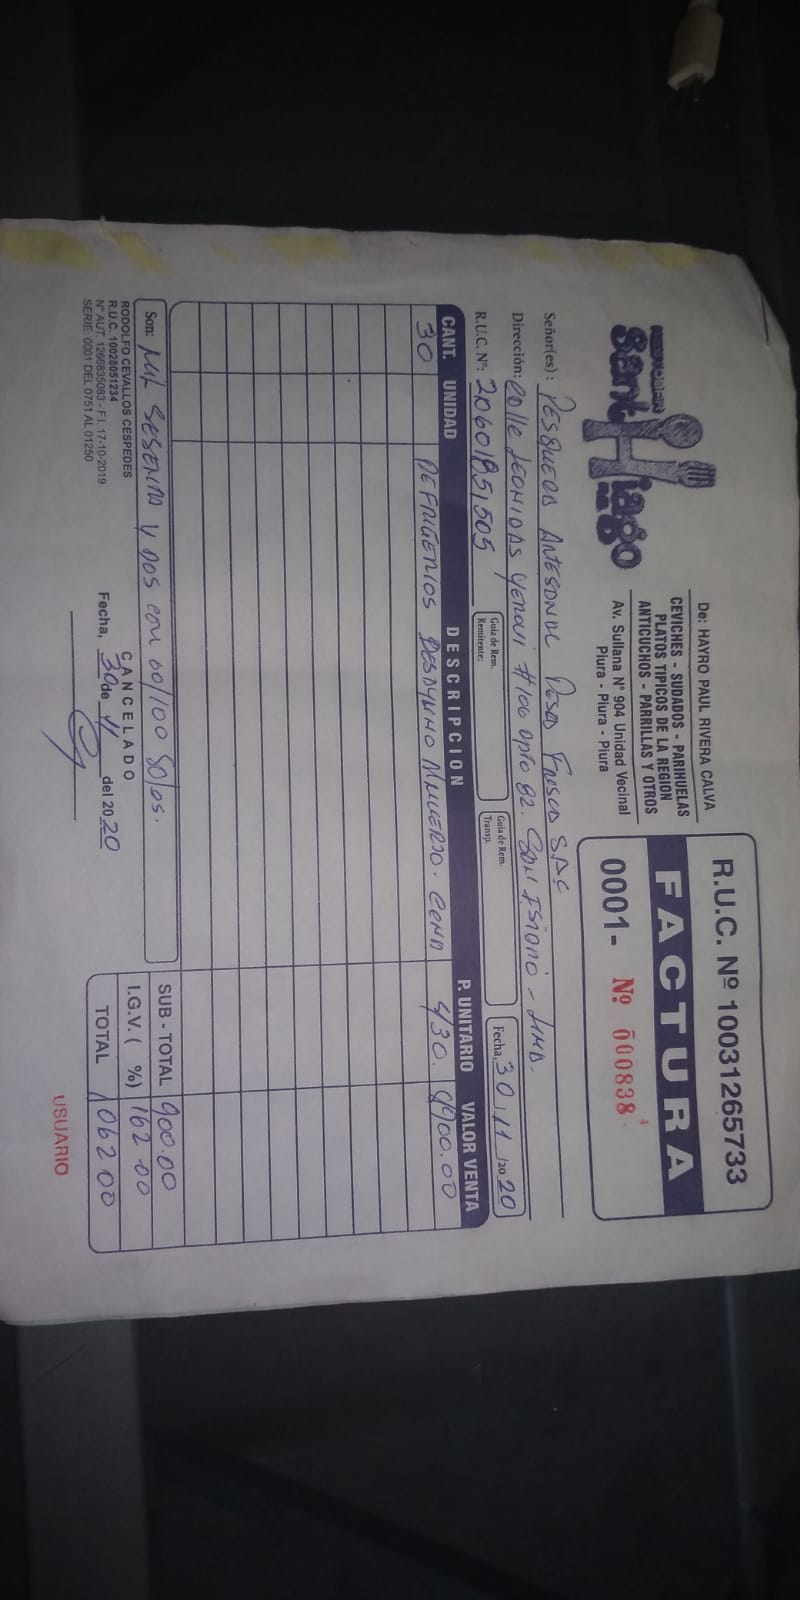 Sant Hiago
De: HAYRO PAUL RIVERA CALVA
CEVICHES - SUDADOS - PARIHUELAS
PLATOS TIPICOS DE LA REGION
ANTICUCHOS - PARRILLAS Y OTROS
Av. Sullana N° 904 Unidad Vecinal
Piura - Piura - Piura
R.U.C. Nº 10031265733
FACTURA
0001- Nº 000838
Señor(es): Pesquera Artesanal Peses Frescos SAC
Dirección: Calle Leonidas Yerovi #106 Dpto 82. San Isidro - Lima.
R.U.C. Nº: 20601851505
Guía de Rem. Remitente:
Guía de Rem. Transp.
Fecha, 30 / 11 / 20 20
CANT. UNIDAD DESCRIPCION P. UNITARIO VALOR VENTA
30 REFRIGERIOS DESAYUNO ALMUERZO - CENA S/30. 900.00
Son: MIL SESENTA Y DOS con 00/100 Soles.
SUB - TOTAL 900.00
I.G.V. ( %) 162 00
TOTAL 1062 00
RODOLFO CEVALLOS CESPEDES
R.U.C. 10028051234
N° AUT. 1266835083 - F.I. 17-10-2019
SERIE: 0001 DEL 0751 AL 01250
CANCELADO
Fecha, 30 de 11 del 2020
USUARIO